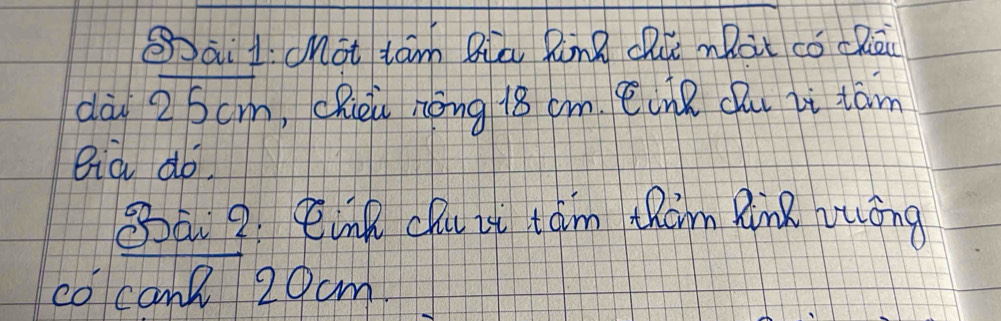 Bài 1: Một tấm bìa hình chữ nhật có chiều
dài 25cm, chiều rộng 18 cm. Tính chu vi tấm
bìa đó.
Bài 2: Tính chu vi tấm thảm hình vuông
có cạnh 20cm.